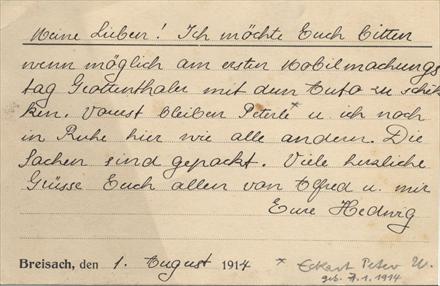 Meine Lieben! Ich möchte Euch bitten
wenn möglich am ersten Mobilmachungs
tag Grottenthaler mit dem Auto zu schik
ken. Vorerst bleiben Peterle* u. ich noch
in Ruhe hier wie alle andern. Die
Sachen sind gepackt. Viele herzliche
Grüsse Euch allen von Alfred u. mir
Eure Hedwig
Breisach, den 1. August 1914 * Eckart Peter W.
geb. 7.1.1914